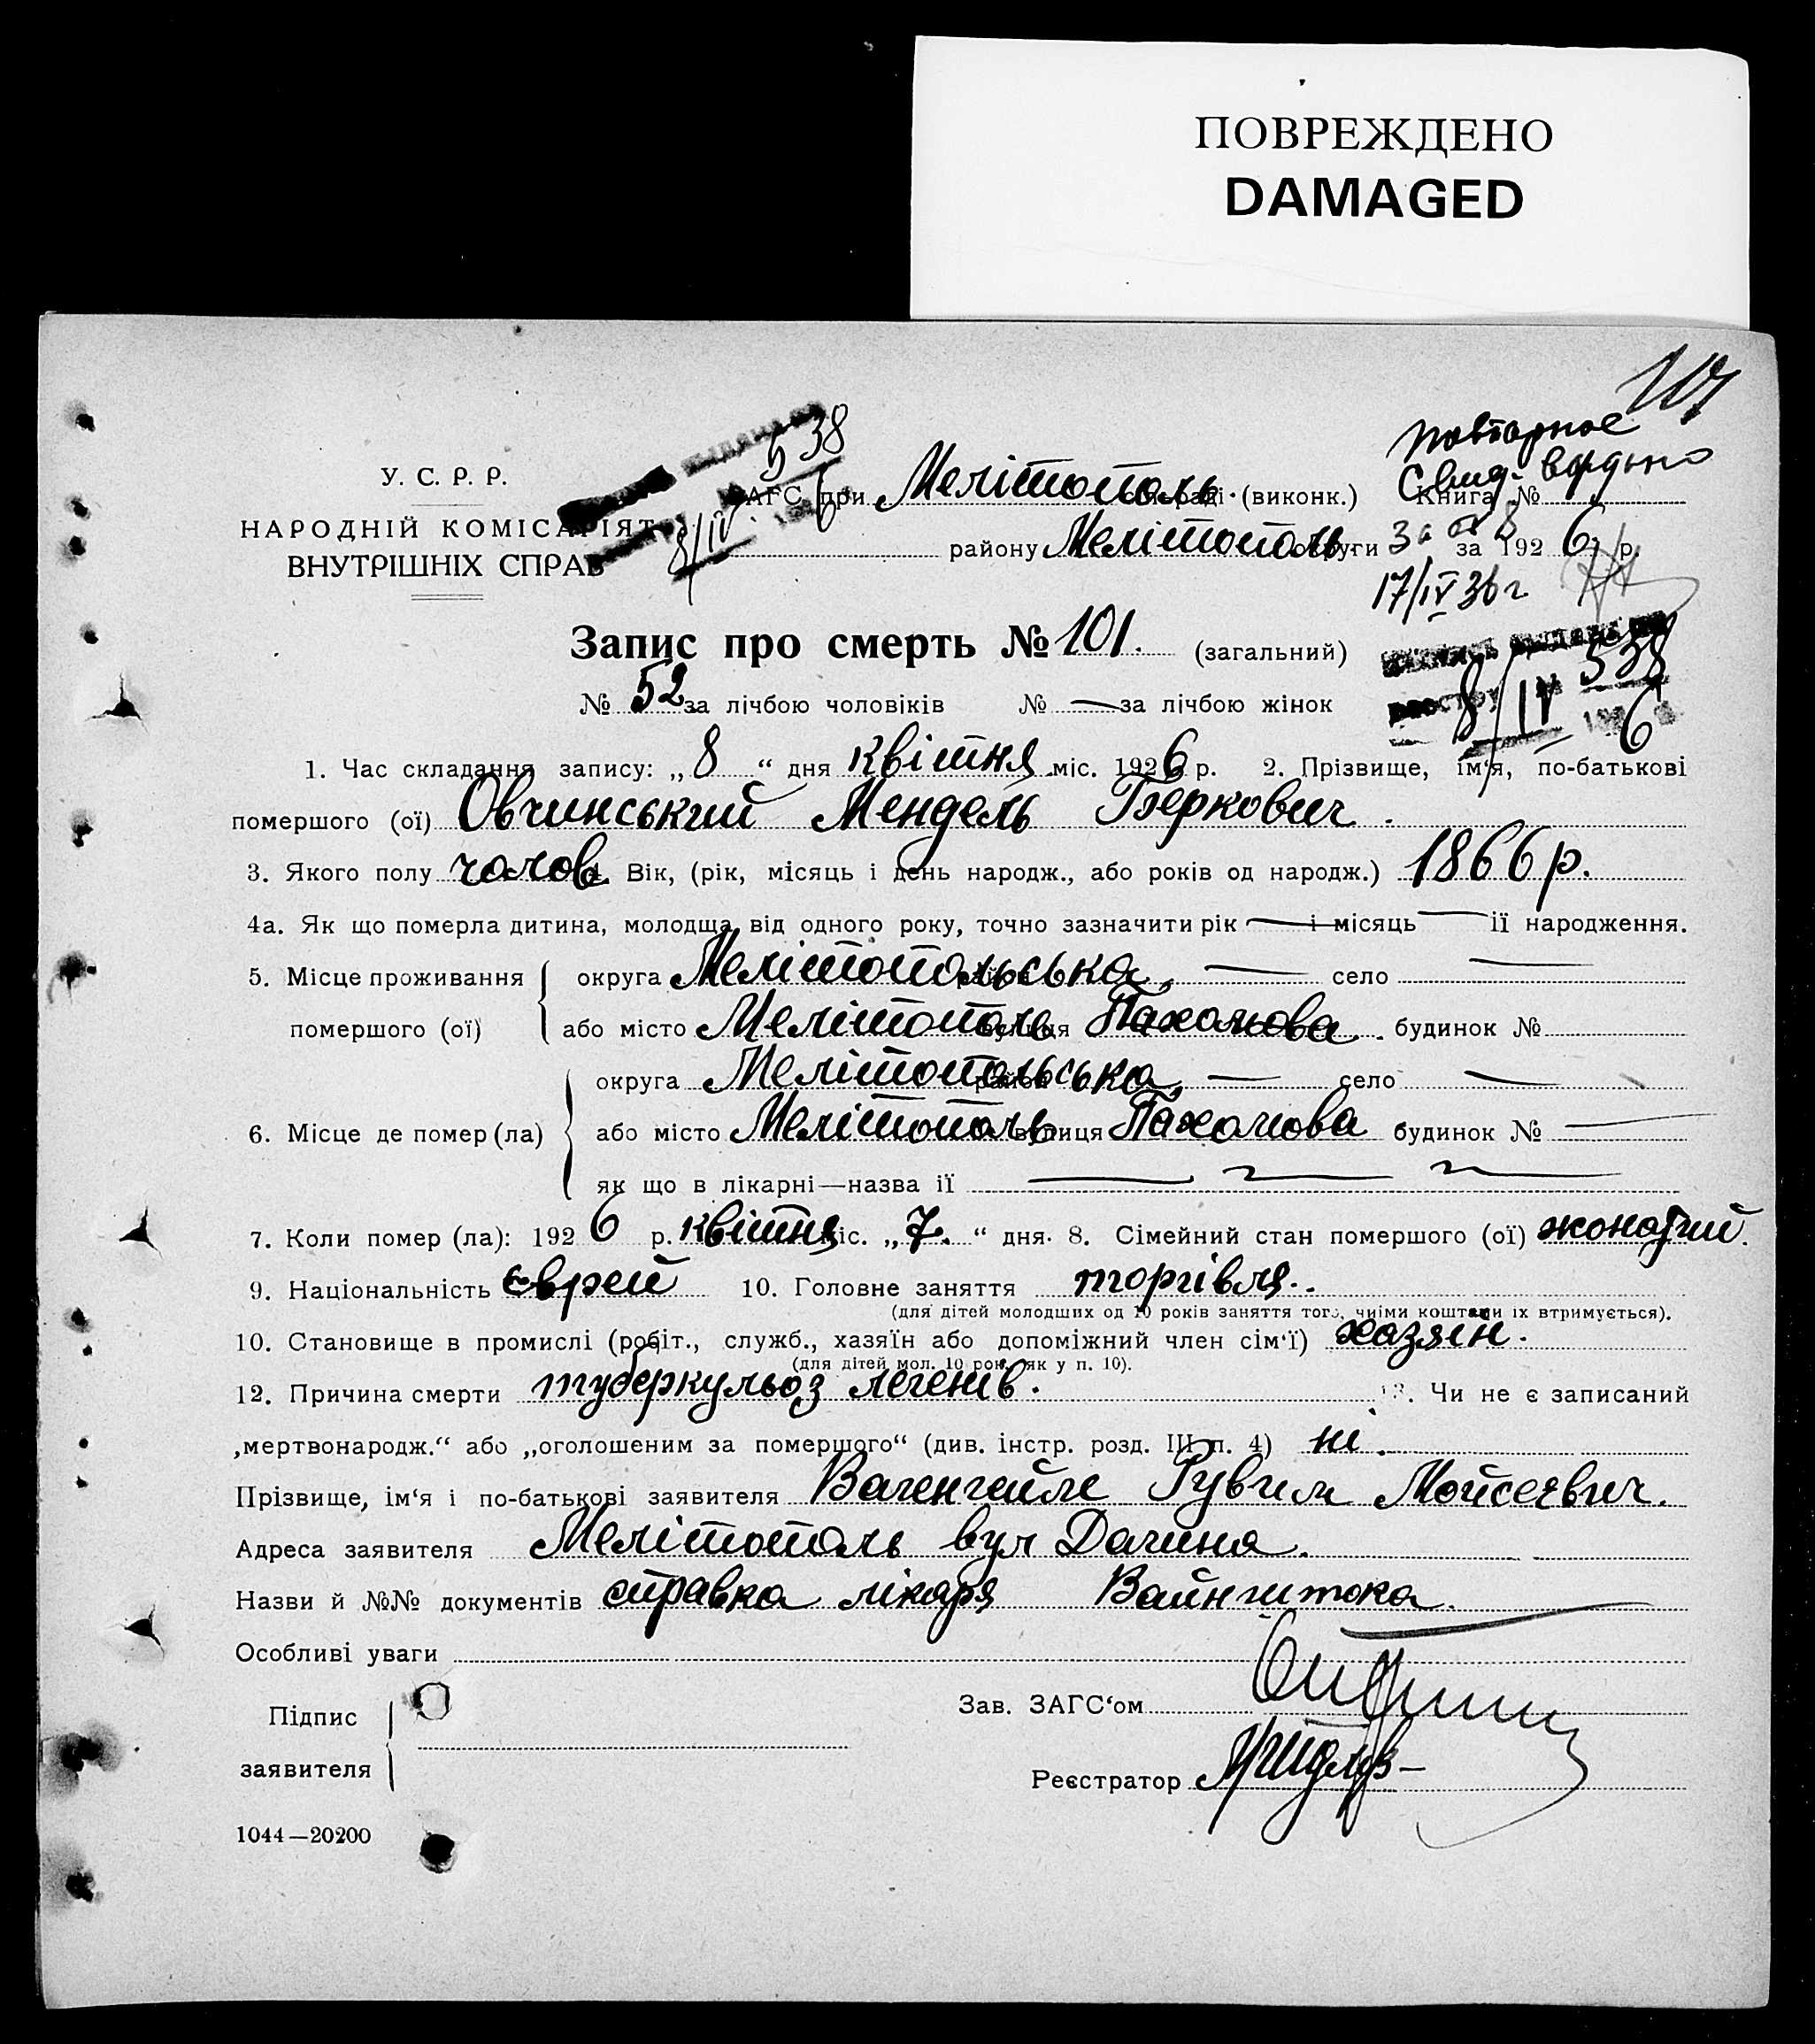 ПОВРЕЖДЕНО
DAMAGED
107
повторное
538
У. С. Р. Р.
ЗАГС при Мелітополь. (виконк.) Книга №
Свид. выдано
НАРОДНІЙ КОМІСАРІЯТ
ВНУТРІШНІХ СПРАВ
8/IV 6
району Мелітополь округи за 1926 р.
за № 8
17/IV 36 г
Запис про смерть № 101. (загальний)
538
№ 52 за лічбою чоловіків № — за лічбою жінок
реестру 8/IV 6
1. Час складання запису: „8“ дня квітня міс. 1926 р. 2. Прізвище, ім‘я, по-батькові
помершого (ої) Овчинський Мендель Беркович.
3. Якого полу чолов 4. Вік, (рік, місяць і день народж., або років од народж.) 1866 р.
4а. Як що померла дитина, молодща від одного року, точно зазначити рік — і місяць — ії народження.
5. Місце проживання округа Мелітопольська, район — село —
помершого (ої) або місто Мелітополь вулиця Пахомова. будинок №
округа Мелітопольська, район — село —
6. Місце де помер (ла) або місто Мелітополь вулиця Пахомова будинок № —
як що в лікарні—назва ії —
7. Коли помер (ла): 1926 р. квітня міс. „7.“ дня. 8. Сімейний стан помершого (ої) жонатий.
9. Національність єврей 10. Головне заняття торгівля.
(для дітей молодших од 10 років заняття того, чиїми коштами їх втримується).
10. Становище в промислі (робіт., служб., хазяїн або допоміжний член сім‘ї) хазяін.
(для дітей мол. 10 рок. як у п. 10).
12. Причина смерти туберкульоз легенів. 13. Чи не є записаний
„мертвонародж.“ або „оголошеним за помершого“ (див. інстр. розд. III п. 4) ні.
Прізвище, ім‘я і по-батькові заявителя Вагенгейм Рувим Мойсеєвич.
Адреса заявителя Мелітополь вул Дачина.
Назви й №№ документів справка лікаря Вайнштока.
Особливі уваги
Підпис
заявителя
Зав. ЗАГС‘ом
Реєстратор
1044—20200